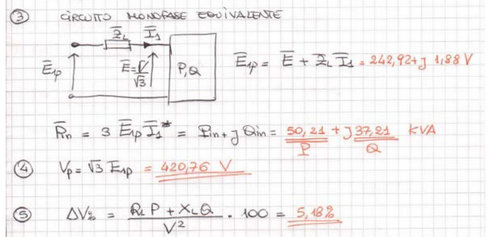 ③ CIRCUITO MONOFASE EQUIVALENTE
Z̄L Ī1
Ē1p Ē=V̄/√3 P,Q Ē1p = Ē + Z̄L Ī1 = 242,92+j 1,88 V
P̄in = 3 Ē1p Ī1* = Pin + j Qin = 50,21 + j 37,21 KVA
P Q
④ Vp = √3 E1p = 420,76 V
⑤ ΔV% = (RL P + XL Q)/V² · 100 = 5,18%